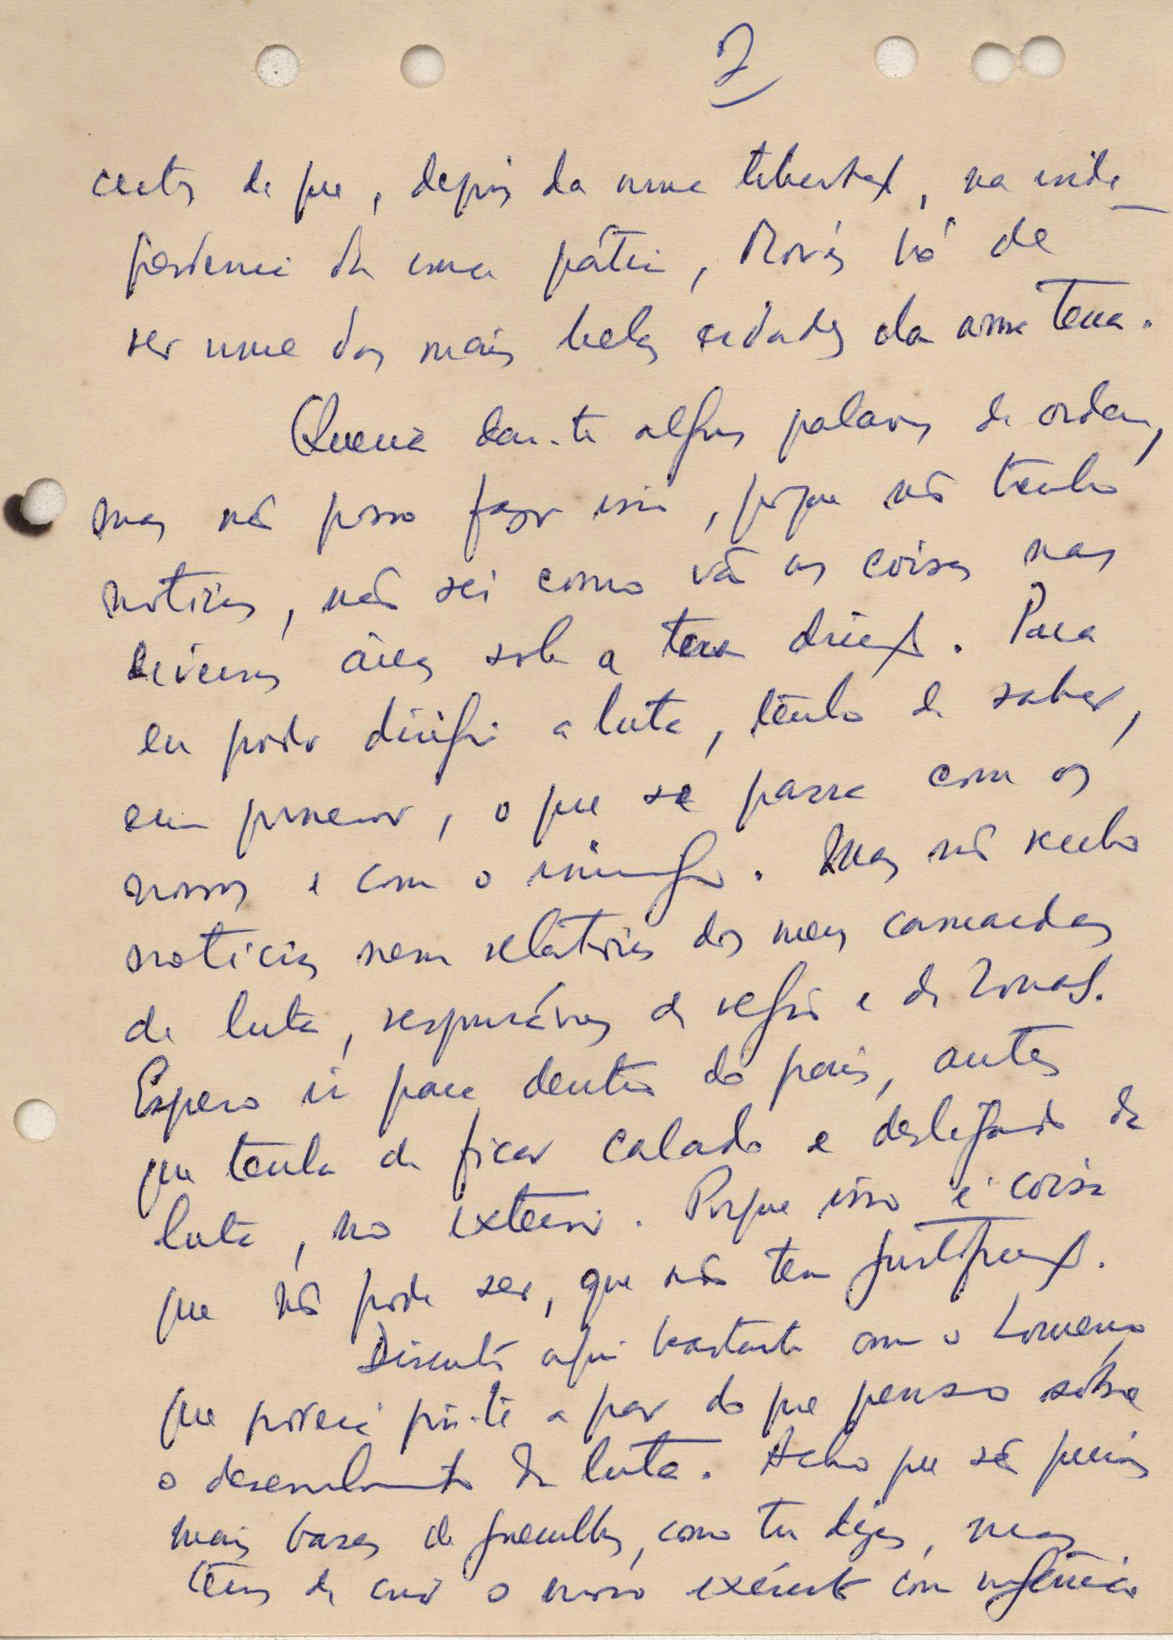 2
certos de que, depois da nossa libertação, na inde-
pendencia da nossa pátria, Morés há de
ser uma das mais belas cidades da nossa terra.
Queria dar-te algumas palavras de ordem,
mas não posso fazer isso, porque não tenho
noticias, não sei como vão as coisas nas
diversas áreas sob a tua direcção. Para
eu poder dirigir a luta, tenho de saber,
em pormenor, o que se passa com os
nossos e com o inimigo. Mas não recebo
noticias nem relatórios dos meus camaradas
de luta, responsáveis de região e de zonas.
Espero ir para dentro do país, antes
que tenha de ficar calado e desligado da
luta, no exterior. Porque isso é coisa
que não pode ser, que não tem justificação.
Discuti aqui bastante com o Lourenço
que poderá pôr-te a par do que penso sobre
o desenvolvimento da luta. Acho que são precisas
mais bases de guerrilhas, como tu dizes, mas
temos de criar o nosso exército com urgência